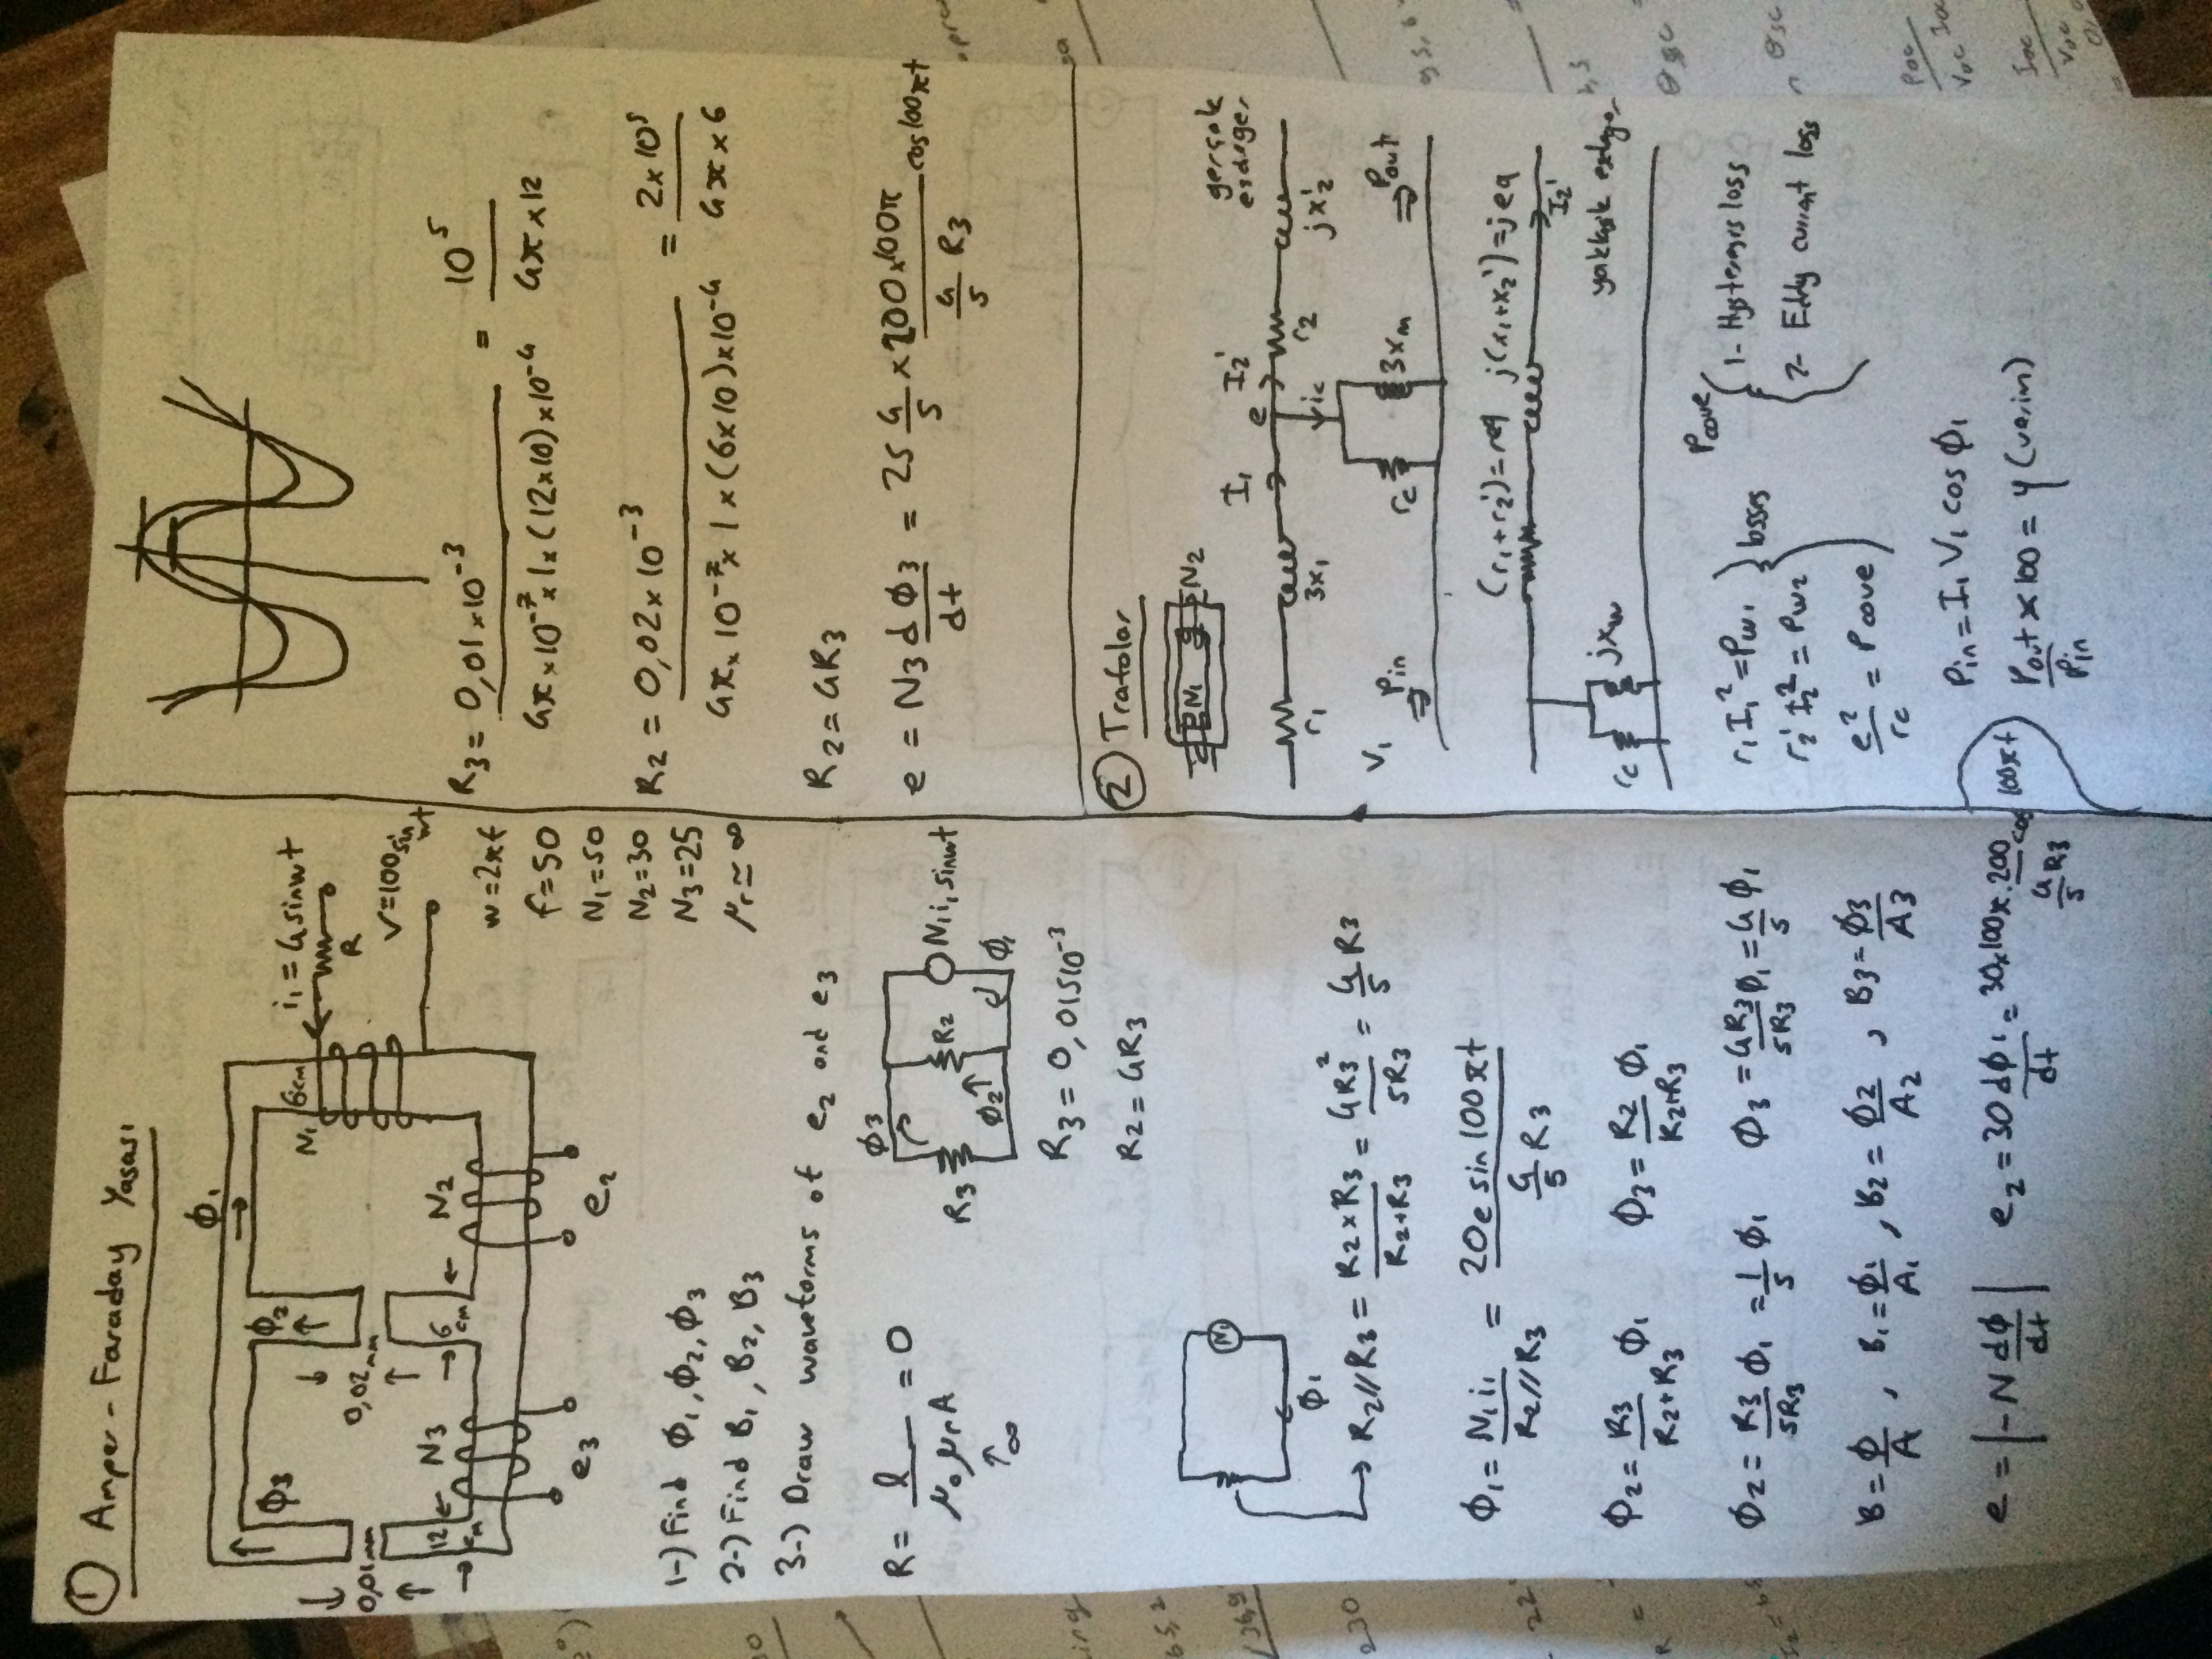 ① Amper-Faraday Yasası
ϕ1
ϕ3
ϕ2
0,01mm
0,02mm
12 cm
6 cm
6cm
N3
N2
N1
e3
e2
i1=4sinwt
R
V=100sin wt
w=2πf
f=50
N1=50
N2=30
N3=25
μr≃∞
1-) Find ϕ1, ϕ2, ϕ3
2-) Find B1, B2, B3
3-) Draw waveforms of e2 and e3
R = l / μ0 μr A = 0
↑
∞
ϕ3
R3
ϕ2
R2
ϕ1
N1i1sinwt
R3 = 0,01510⁻³
R2 = 4R3
ϕ1
→ R2//R3 = R2×R3 / R2+R3 = 4R3² / 5R3 = 4/5 R3
ϕ1 = N1i1 / R2//R3 = 20e sin100πt / 4/5 R3
ϕ2 = R3 / R2+R3 ϕ1 ϕ3 = R2 / R2+R3 ϕ1
ϕ2 = R3 / 5R3 ϕ1 = 1/5 ϕ1 ϕ3 = 4R3 / 5R3 ϕ1 = 4/5 ϕ1
B = ϕ/A , B1 = ϕ1/A1 , B2 = ϕ2/A2 , B3 = ϕ3/A3
e = |-N dϕ/dt| e2 = 30 dϕ1/dt = 30×100π.200 / 4/5 R3 cos 100πt
R3 = 0,01×10⁻³ / 4π×10⁻⁷×1×(12×10)×10⁻⁴ = 10⁵ / 4π×12
R2 = 0,02×10⁻³ / 4π×10⁻⁷×1×(6×10)×10⁻⁴ = 2×10⁵ / 4π×6
R2 = 4R3
e = N3 dϕ3/dt = 25 4/5 × 200×100π / 4/5 R3 cos100πt
② Trafolar
N1
N2
I1
e
I2'
gerçek eşdeğer
r1
3x1
ic
r2
jx2'
V1
rc
3xm
⇒ Pin
⇒ Pout
(r1+r2')=req j(x1+x2')=jeq
I2'
rc
jxm
r1I1²=Pw1
r2'I2²=Pw2
e²/rc = Pcore
losses
Pcore,
1- Hysteresis loss
2- Eddy current loss
Pin = I1 V1 cos ϕ1
Pout/Pin × 100 = η (verim)